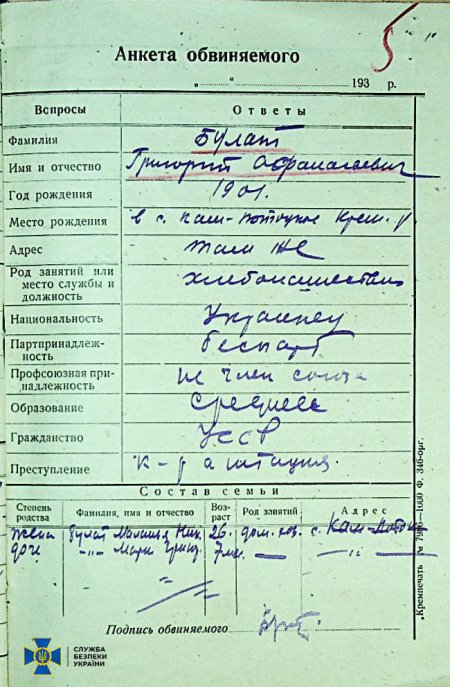 5
Анкета обвиняемого
„ “ 193 р.
Вопросы Ответы
Фамилия Булат
Имя и отчество Григорий Афанасьевич
Год рождения 1901.
Место рождения в с. Кам-Потоцкое Крем. р
Адрес там же
Род занятий или место службы и должность хлебопашество
Национальность Украинец
Партпринадлежность беспарт
Профсоюзная принадлежность не член союза
Образование среднее
Гражданство УССР
Преступление к-р агитация.
Состав семьи
Степень родства Фамилия, имя и отчество Возраст Род занятий Адрес
жена Булат Меланья Ник. 26. дом. хоз. с. Кам-Потоки
доч -"- Мари Григ. 7 мес. — -"-
Подпись обвиняемого
„Кремпечать“ № 1000 Ф. 346-орг.
СЛУЖБА
БЕЗПЕКИ
УКРАЇНИ